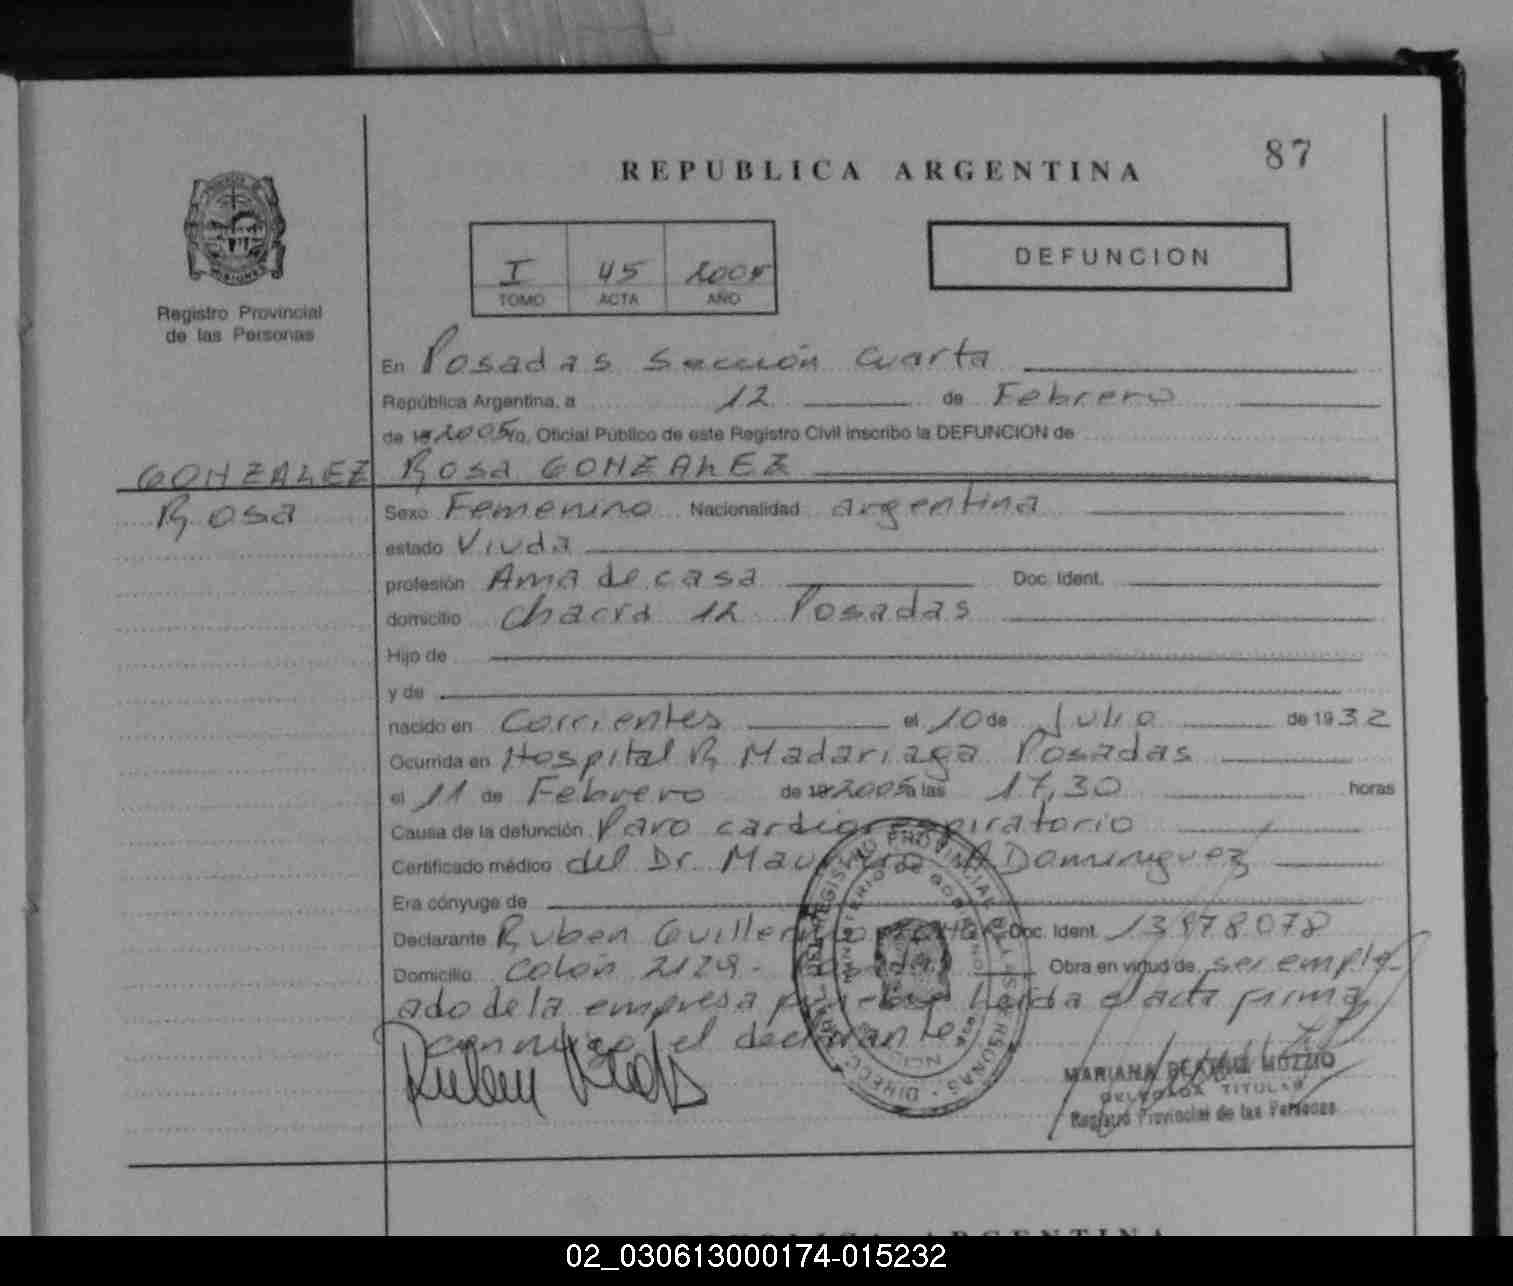 87
REPUBLICA ARGENTINA
DEFUNCION
I 45 2005
TOMO ACTA AÑO
Registro Provincial
de las Personas
En Posadas Sección Cuarta
República Argentina, a 12 de Febrero
de 19 2005 yo, Oficial Público de este Registro Civil inscribo la DEFUNCION de
GONZALEZ Rosa GONZALEZ
Rosa
Sexo Femenino Nacionalidad argentina
estado Viuda
profesión Ama de casa Doc. Ident.
domicilio chacra 12 Posadas
Hijo de
y de
nacido en Corrientes el 10 de Julio de 1932
Ocurrida en Hospital R Madariaga Posadas
el 11 de Febrero de 19 2005 a las 17,30 horas
Causa de la defunción Paro cardiorrespiratorio
Certificado médico del Dr. A Dominguez
Era cónyuge de
Declarante Ruben Guillermo Doc. Ident. 13878078
Domicilio Colón 2129 - Posadas Obra en virtud de ser emple-
ado de la empresa leida el acta firma
conmigo el declarante
Ruben
MARIANA BEATRIZ MUZZIO
DELEGADA TITULAR
Registro Provincial de las Personas
REPUBLICA ARGENTINA
02_030613000174-015232